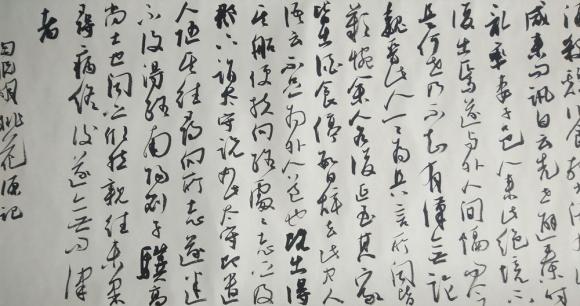 酒殺雞作食
咸來問訊自云先世避秦時
亂率妻子邑人來此絕境不
復出焉遂與外人間隔問今
是何世乃不知有漢無論
魏晉此人一一為具言所聞皆
歎惋余人各復延至其家
皆出酒食停數日辭去此中人
語云不足為外人道也既出得
其船便扶向路處々志之及
郡下詣太守說如此太守即遣
人隨其往尋向所志遂迷
不復得路南陽劉子驥高
尚士也聞之欣然親往未果
尋病終後遂無問津
者
陶淵明桃花源記